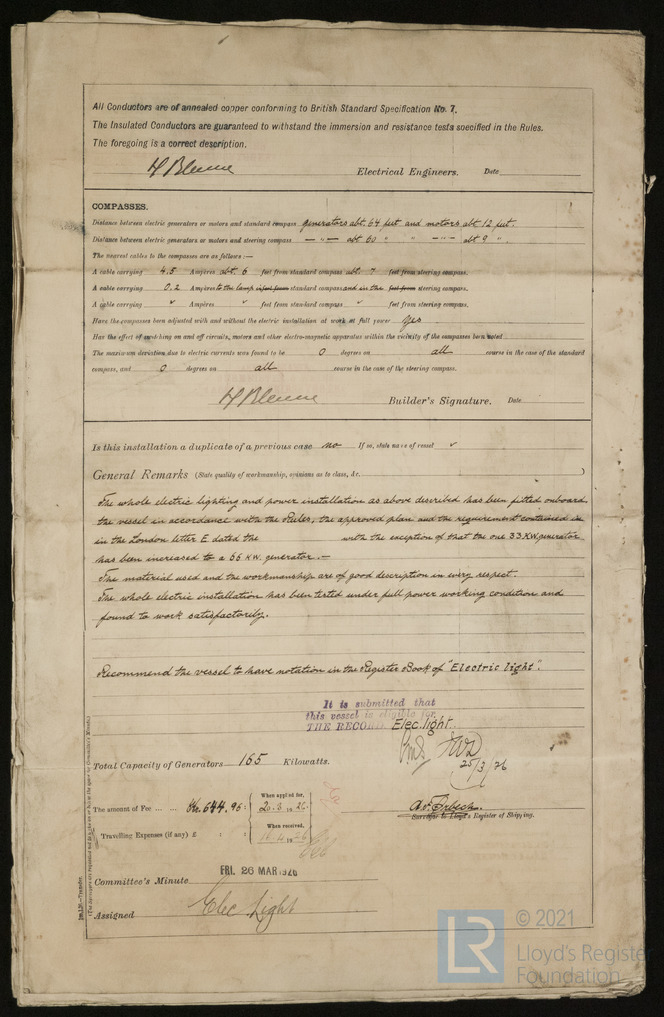 All Conductors are of annealed copper conforming to British Standard Specification No. 7.
The Insulated Conductors are guaranteed to withstand the immersion and resistance tests specified in the Rules.
The foregoing is a correct description.
Electrical Engineers. Date
COMPASSES.
Distance between electric generators or motors and standard compass generators abt. 64 feet and motors abt 12 feet.
Distance between electric generators or motors and steering compass —"— abt 60 " " —"— abt 9 " .
The nearest cables to the compasses are as follows:—
A cable carrying 4.5 Ampères abt. 6 feet from standard compass abt. 7 feet from steering compass.
A cable carrying 0.2 Ampères to the lamp feet from standard compass and in the feet from steering compass.
A cable carrying ✓ Ampères ✓ feet from standard compass ✓ feet from steering compass.
Have the compasses been adjusted with and without the electric installation at work at full power yes
Has the effect of switching on and off circuits, motors and other electro-magnetic apparatus within the vicinity of the compasses been noted
The maximum deviation due to electric currents was found to be 0 degrees on all course in the case of the standard
compass, and 0 degrees on all course in the case of the steering compass.
Builder's Signature. Date
Is this installation a duplicate of a previous case no If so, state name of vessel ✓
General Remarks (State quality of workmanship, opinions as to class, &c. )
The whole electric lighting and power installation as above described has been fitted onboard
the vessel in accordance with the Rules, the approved plan and the requirement contained in
in the London letter E dated the with the exception of that the one 33 KW. generator
has been increased to a 66 KW. generator.—
The material used and the workmanship are of good description in every respect.
The whole electric installation has been tested under full power working condition and
found to work satisfactorily.
Recommend the vessel to have notation in the Register Book of "Electric light".
It is submitted that
this vessel is eligible for
THE RECORD. Elec. light.
25/3/26
Total Capacity of Generators 165 Kilowatts.
The amount of Fee ... ... Kr. 644.95 : When applied for, 20.3.1926
Surveyor to Lloyd's Register of Shipping.
Travelling Expenses (if any) £ : : When received, 16.4.1926
FRI. 26 MAR 1926
Committee's Minute
Assigned Elec Light
Im.1,26.—Transfer.
© 2021
LR
Lloyd's Register
Foundation